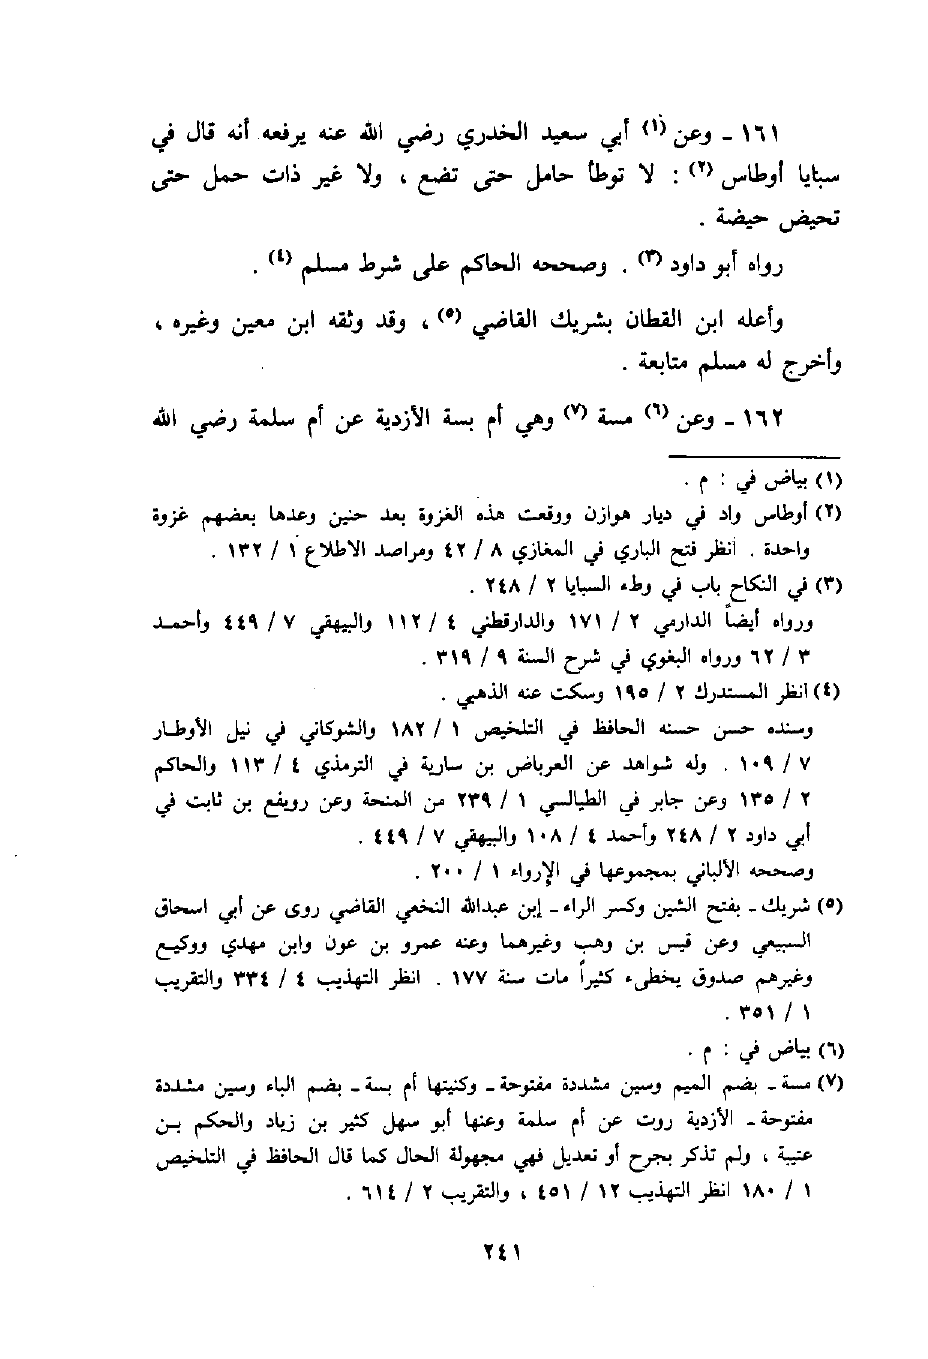 ١٦١ ـ وعن (١) أبي سعيد الخدري رضي الله عنه يرفعه أنه قال في
سبايا أوطاس (٢) : لا توطأ حامل حتى تضع ، ولا غير ذات حمل حتى
تحيض حيضة .
رواه أبو داود (٣) . وصححه الحاكم على شرط مسلم (٤) .
وأعله ابن القطان بشريك القاضي (٥) ، وقد وثقه ابن معين وغيره ،
وأخرج له مسلم متابعة .
١٦٢ ـ وعن (٦) مسة (٧) وهي أم بسة الأزدية عن أم سلمة رضي الله
(١) بياض في : م .
(٢) أوطاس واد في ديار هوازن ووقعت هذه الغزوة بعد حنين وعدها بعضهم غزوة
واحدة . انظر فتح الباري في المغازي ٨ / ٤٢ ومراصد الاطلاع ١ / ١٣٢ .
(٣) في النكاح باب في وطء السبايا ٢ / ٢٤٨ .
ورواه أيضاً الدارمي ٢ / ١٧١ والدارقطني ٤ / ١١٢ والبيهقي ٧ / ٤٤٩ وأحمد
٣ / ٦٢ ورواه البغوي في شرح السنة ٩ / ٣١٩ .
(٤) انظر المستدرك ٢ / ١٩٥ وسكت عنه الذهبي .
وسنده حسن حسنه الحافظ في التلخيص ١ / ١٨٢ والشوكاني في نيل الأوطار
٧ / ١٠٩ . وله شواهد عن العرباض بن سارية في الترمذي ٤ / ١١٣ والحاكم
٢ / ١٣٥ وعن جابر في الطيالسي ١ / ٢٣٩ من المنحة وعن رويفع بن ثابت في
أبي داود ٢ / ٢٤٨ وأحمد ٤ / ١٠٨ والبيهقي ٧ / ٤٤٩ .
وصححه الألباني بمجموعها في الإرواء ١ / ٢٠٠ .
(٥) شريك ـ بفتح الشين وكسر الراء ـ إبن عبدالله النخعي القاضي روى عن أبي اسحاق
السبيعي وعن قيس بن وهب وغيرهما وعنه عمرو بن عون وابن مهدي ووكيع
وغيرهم صدوق يخطىء كثيراً مات سنة ١٧٧ . انظر التهذيب ٤ / ٣٣٤ والتقريب
١ / ٣٥١ .
(٦) بياض في : م .
(٧) مسة ـ بضم الميم وسين مشددة مفتوحة ـ وكنيتها أم بسة ـ بضم الباء وسين مشددة
مفتوحة ـ الأزدية روت عن أم سلمة وعنها أبو سهل كثير بن زياد والحكم بن
عتيبة ، ولم تذكر بجرح أو تعديل فهي مجهولة الحال كما قال الحافظ في التلخيص
١ / ١٨٠ انظر التهذيب ١٢ / ٤٥١ ، والتقريب ٢ / ٦١٤ .
٢٤١